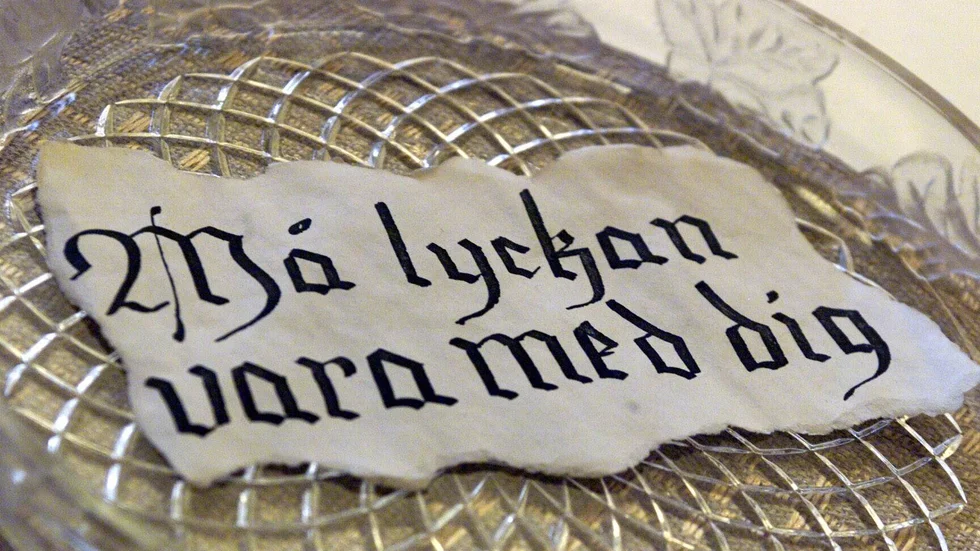 Må lyckan
vara med dig